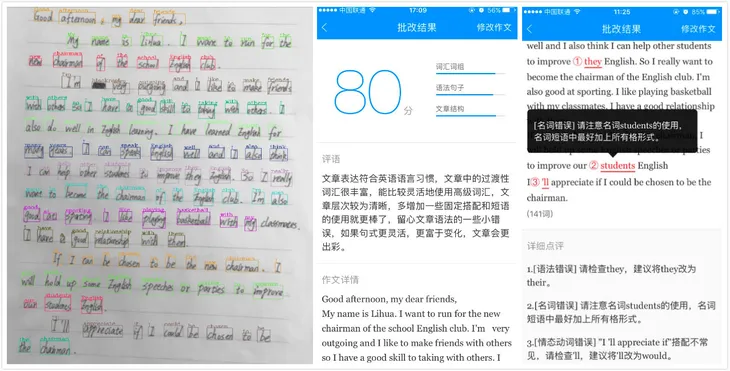 Good afternoon, my dear friends,
My name is Lihua. I want to run for the
new chairman of the school English club.
I'm very outgoing and I like to make friends
with others so I have a good skill to taking with others. I
also do well in English learning. I have learned English for
many years. I can speak English well and I also think
I can help other students to improve they English. So I really
want to become the chairman of the English club. I'm also
good at sporting. I like playing basketball with my classmates.
I have a good relationship with them.
If I can be chosen to be the new chairman, I
will hold up some English speeches or parties to improve
our students English.
I'll appreciate if I could be chosen to be
the chairman.
中国联通 17:09 56%
批改结果 修改作文
80分
词汇词组
语法句子
文章结构
评语
文章表达符合英语语言习惯，文章中的过渡性
词汇很丰富，能比较灵活地使用高级词汇，文
章层次较为清晰，多增加一些固定搭配和短语
的使用就更棒了，留心文章语法的一些小错
误，如果句式更灵活，更富于变化，文章会更
出彩。
作文详情
Good afternoon, my dear friends,
My name is Lihua. I want to run for the new
chairman of the school English club. I'm very
outgoing and I like to make friends with others
so I have a good skill to taking with others. I
中国联通 11:25 85%
批改结果 修改作文
well and I also think I can help other students
to improve ① they English. So I really want to
become the chairman of the English club. I'm
also good at sporting. I like playing basketball
with my classmates. I have a good relationship
[名词错误] 请注意名词students的使用，
名词短语中最好加上所有格形式。
to improve our ② students English
I③ 'll appreciate if I could be chosen to be the
chairman.
(141词)
详细点评
1.[语法错误] 请检查they，建议将they改为
their。
2.[名词错误] 请注意名词students的使用，名
词短语中最好加上所有格形式。
3.[情态动词错误] "I 'll appreciate if"搭配不常
见，请检查'll，建议将'll改为would。